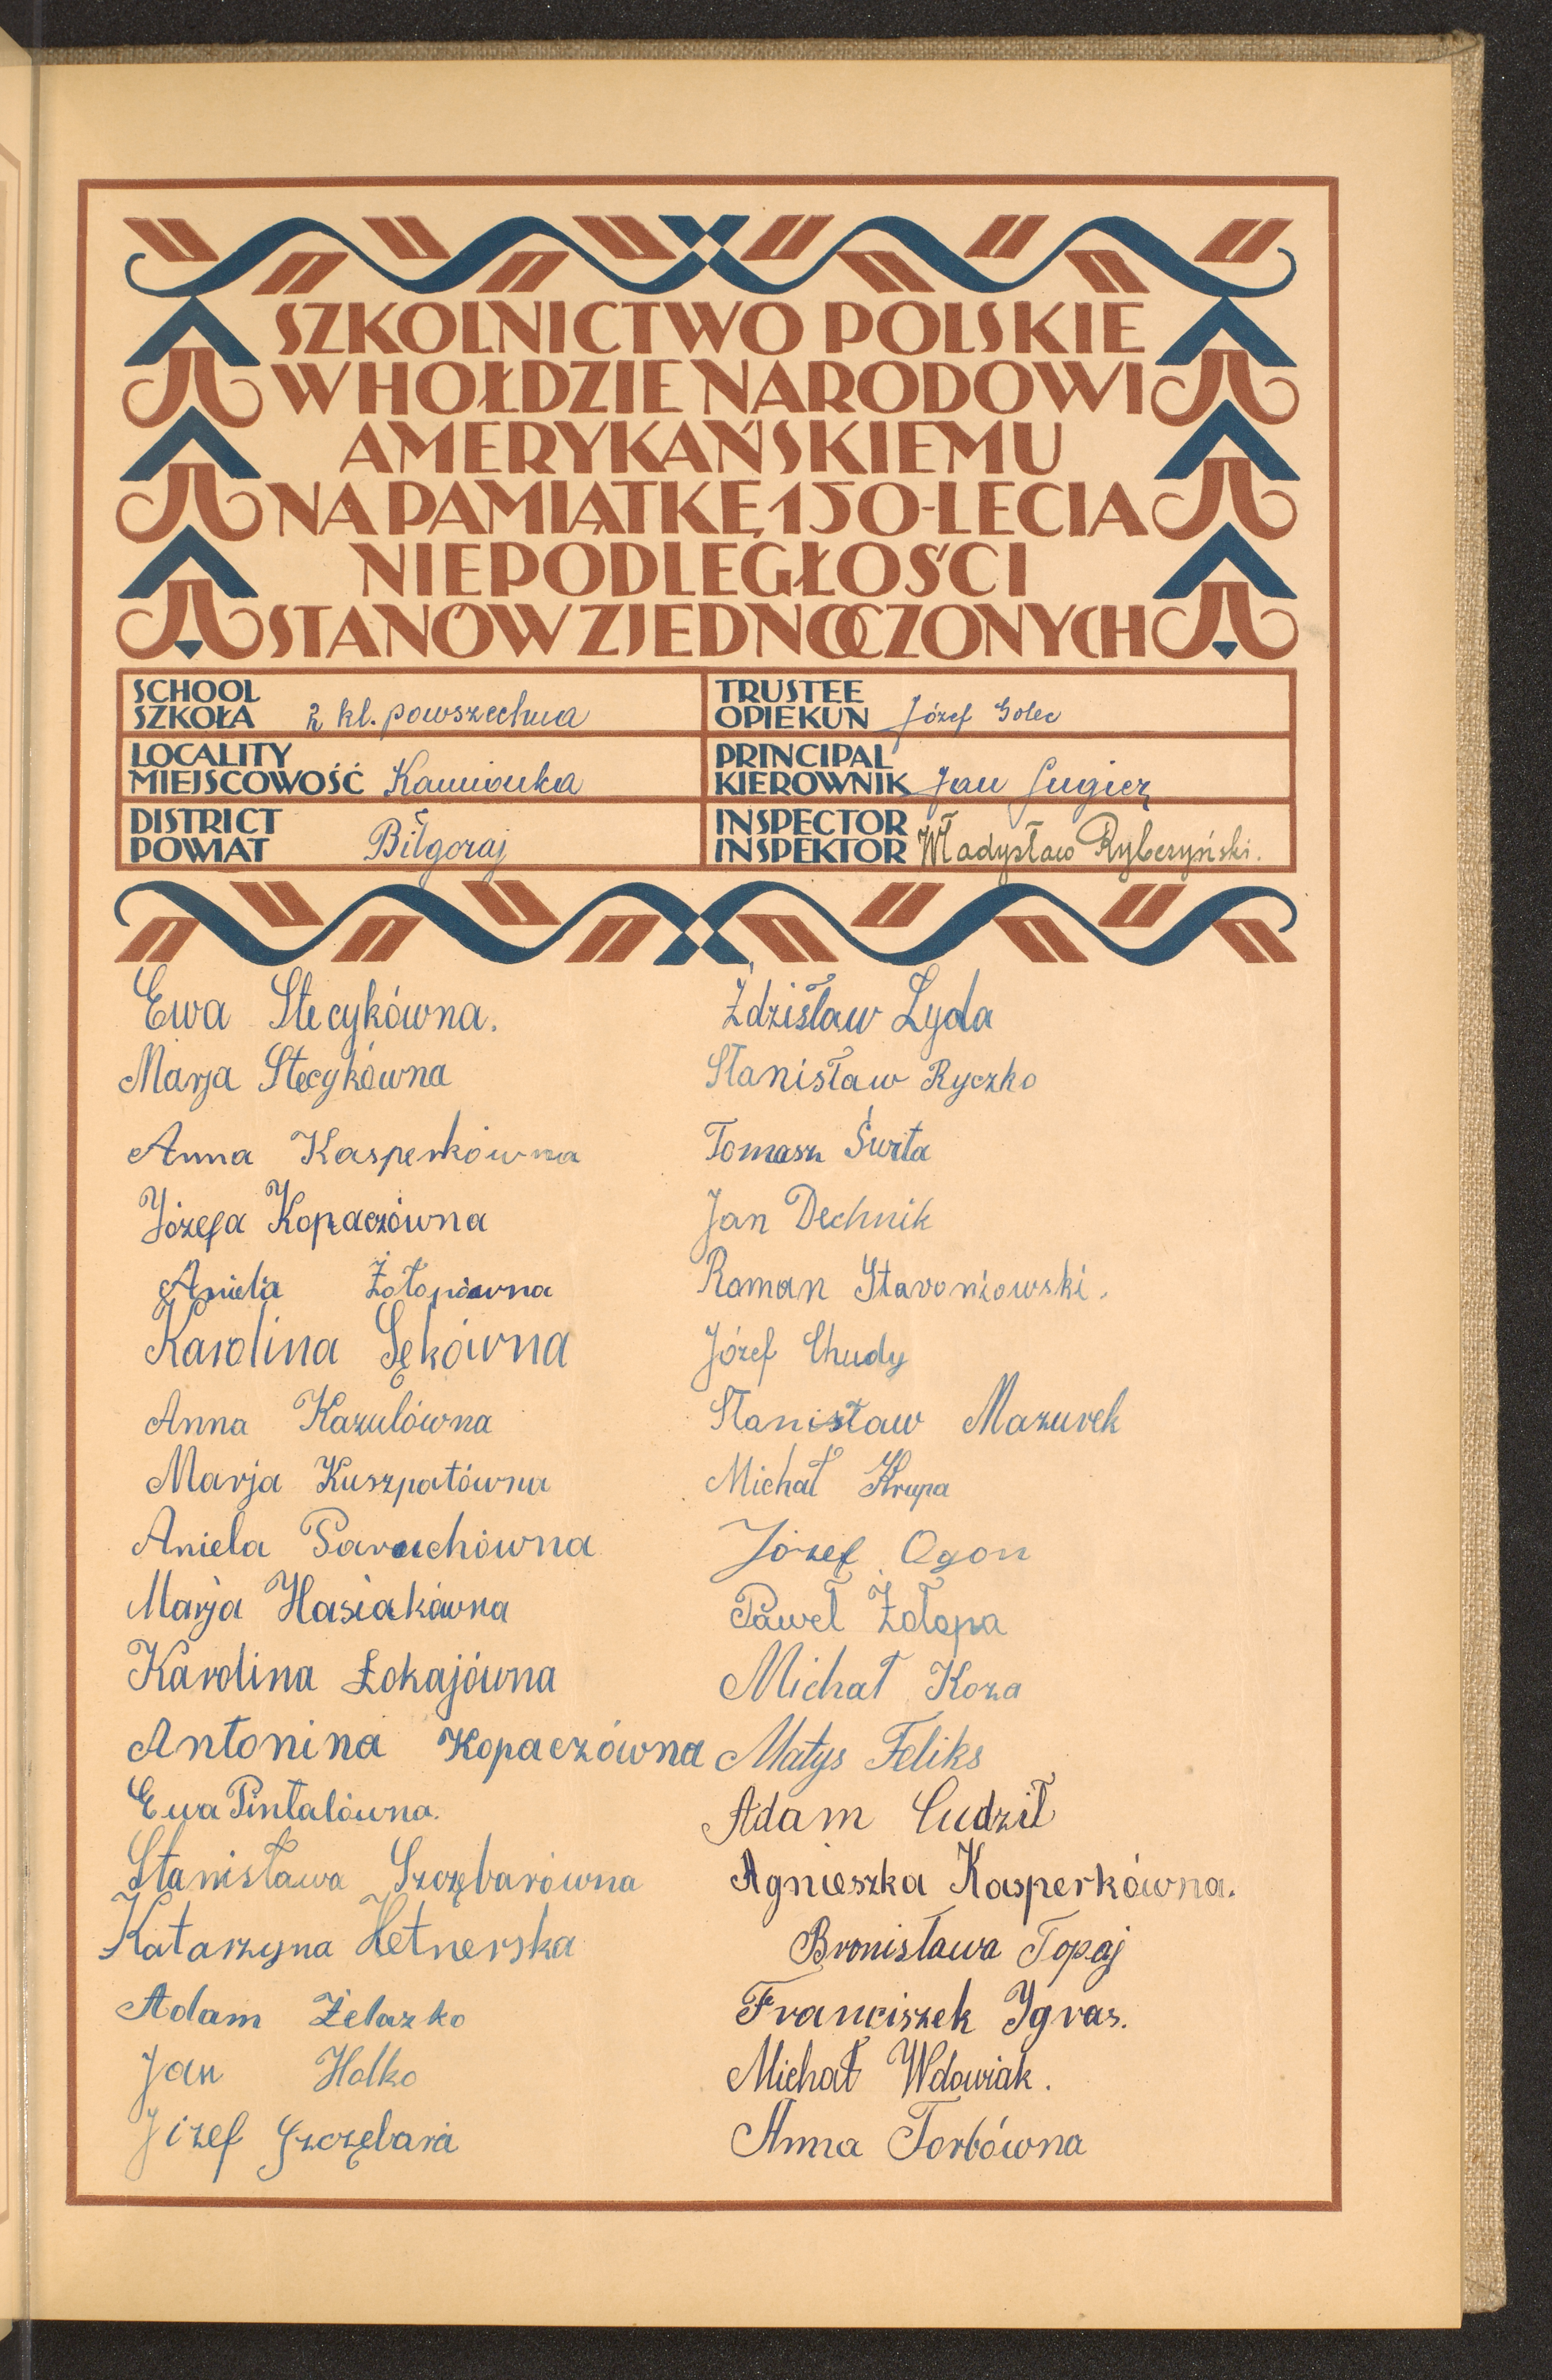 SZKOLNICTWO POLSKIE
W HOŁDZIE NARODOWI
AMERYKAŃSKIEMU
NA PAMIĄTKĘ 150-LECIA
NIEPODLEGŁOŚCI
STANÓW ZJEDNOCZONYCH
SCHOOL
SZKOŁA 2 kl. powszechna
LOCALITY
MIEJSCOWOŚĆ Kamionka
DISTRICT
POWIAT Biłgoraj
TRUSTEE
OPIEKUN Józef Golec
PRINCIPAL
KIEROWNIK Jan
INSPECTOR
INSPEKTOR Władysław Rybczyński.
Ewa Stecykówna.
Marja Stecykówna
Anna Kasperkówna
Józefa Kopaczówna
Aniela Żołopówna
Karolina Sękówna
Anna Kazulówna
Marja Kuszpatówna
Aniela Paruchówna
Marja Hasiakówna
Karolina Łokajówna
Antonina Kopaczówna
Ewa Pintalówna.
Stanisława Szczębarówna
Katarzyna Hetnerska
Adam Żelazko
Jan Halko
Józef Szczębara
Zdzisław Łyda
Stanisław Ryczko
Tomasz Świta
Jan Dechnik
Roman Staroniowski.
Józef Chudy
Stanisław Mazurek
Michał Krupa
Józef Ogon
Paweł Żołopa
Michał Koza
Matys Feliks
Adam Cudził
Agnieszka Kasperkówna.
Bronisława Topaj
Franciszek Igras.
Michał Wdowiak.
Anna Torbówna